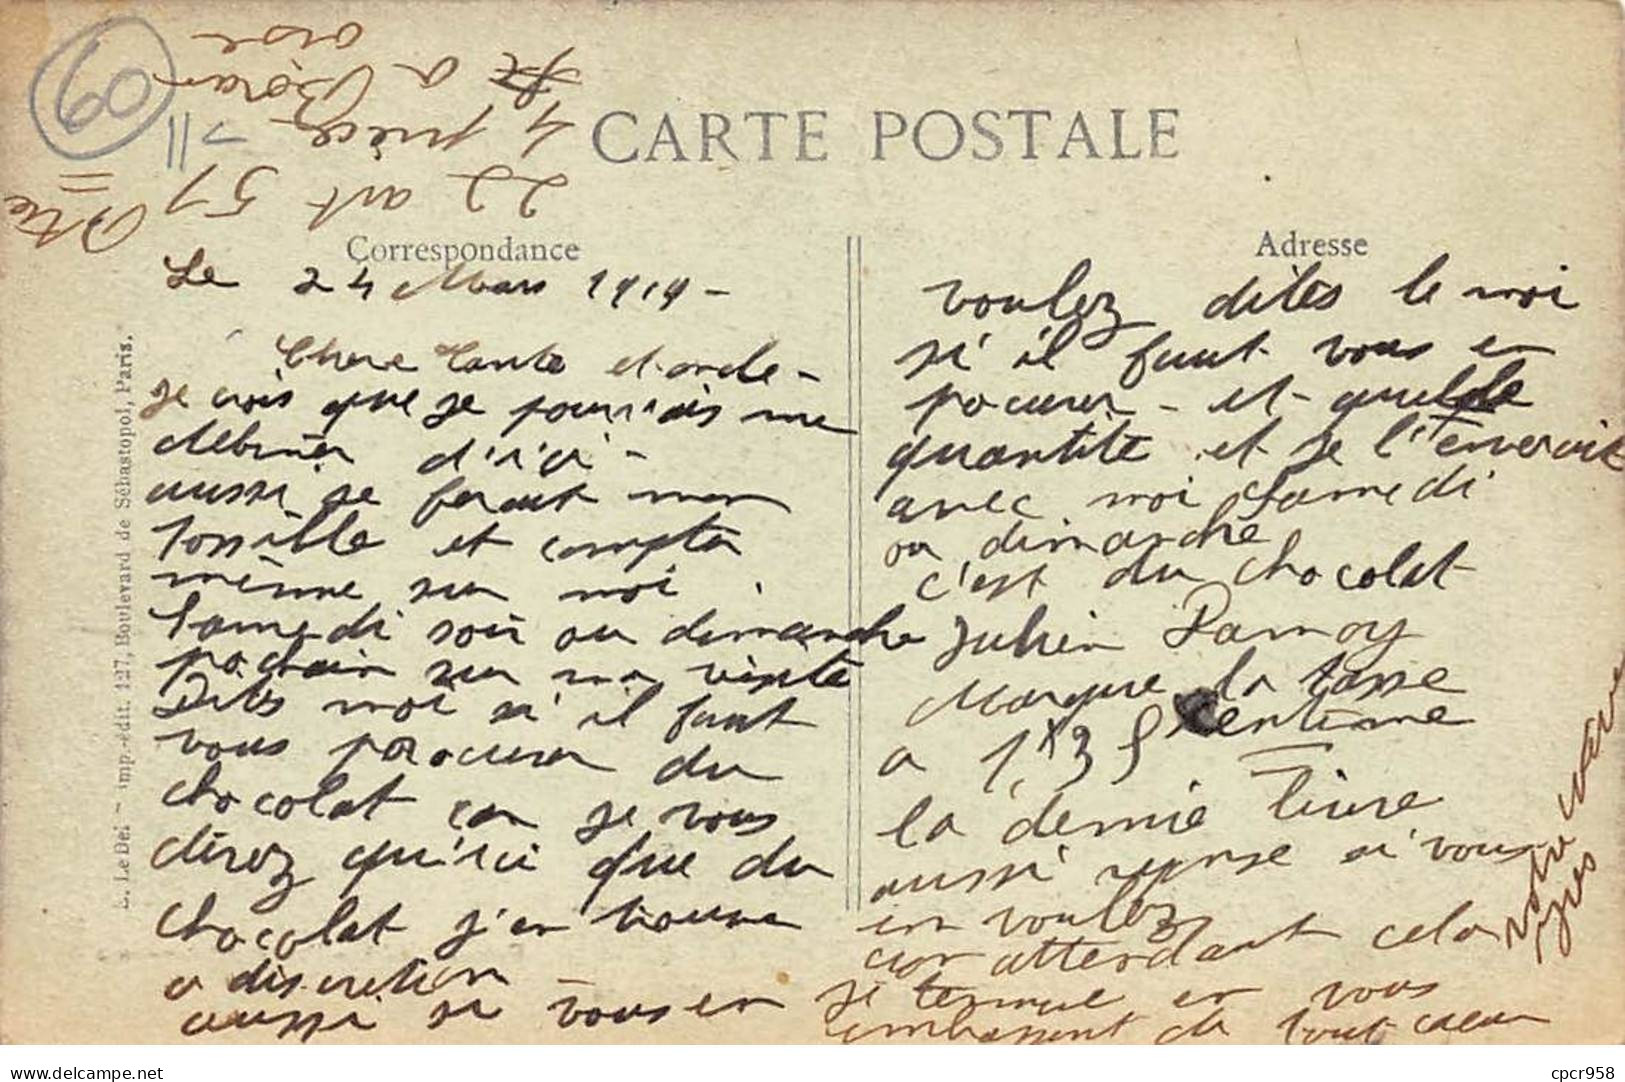 60
22 art 51
4 pièce
a Boran
oise
CARTE POSTALE
Correspondance
Adresse
Le 24 Mars 1919 -
Chere tante et oncle -
je crois que je pourrais me
debiner d'ici -
aussi je ferait mon
possible et compter
même sur moi
samedi soir ou dimanche
pochain sur ma visite
Dites moi si il faut
vous procurer du
chocolat car je vous
direz qu'ici que du
chocolat j'en trouve
a discretion -
aussi si vous en
voulez dites le moi
si il faut vous en
pocurer - et quelle
quantite et je l'enverait
avec moi samedi
ou dimanche
c'est du chocolat
Julien Damoy
Marque la tasse
a 1x35 centime
la demie livre
aussi reponse si vous
en voulez
en attendant cela
je termine en vous
embrassant de tout coeur
votre neveu
E. Le Del imp.-édit. 127, Boulevard de Sébastopol, Paris.
delcampe.net
cpcr958